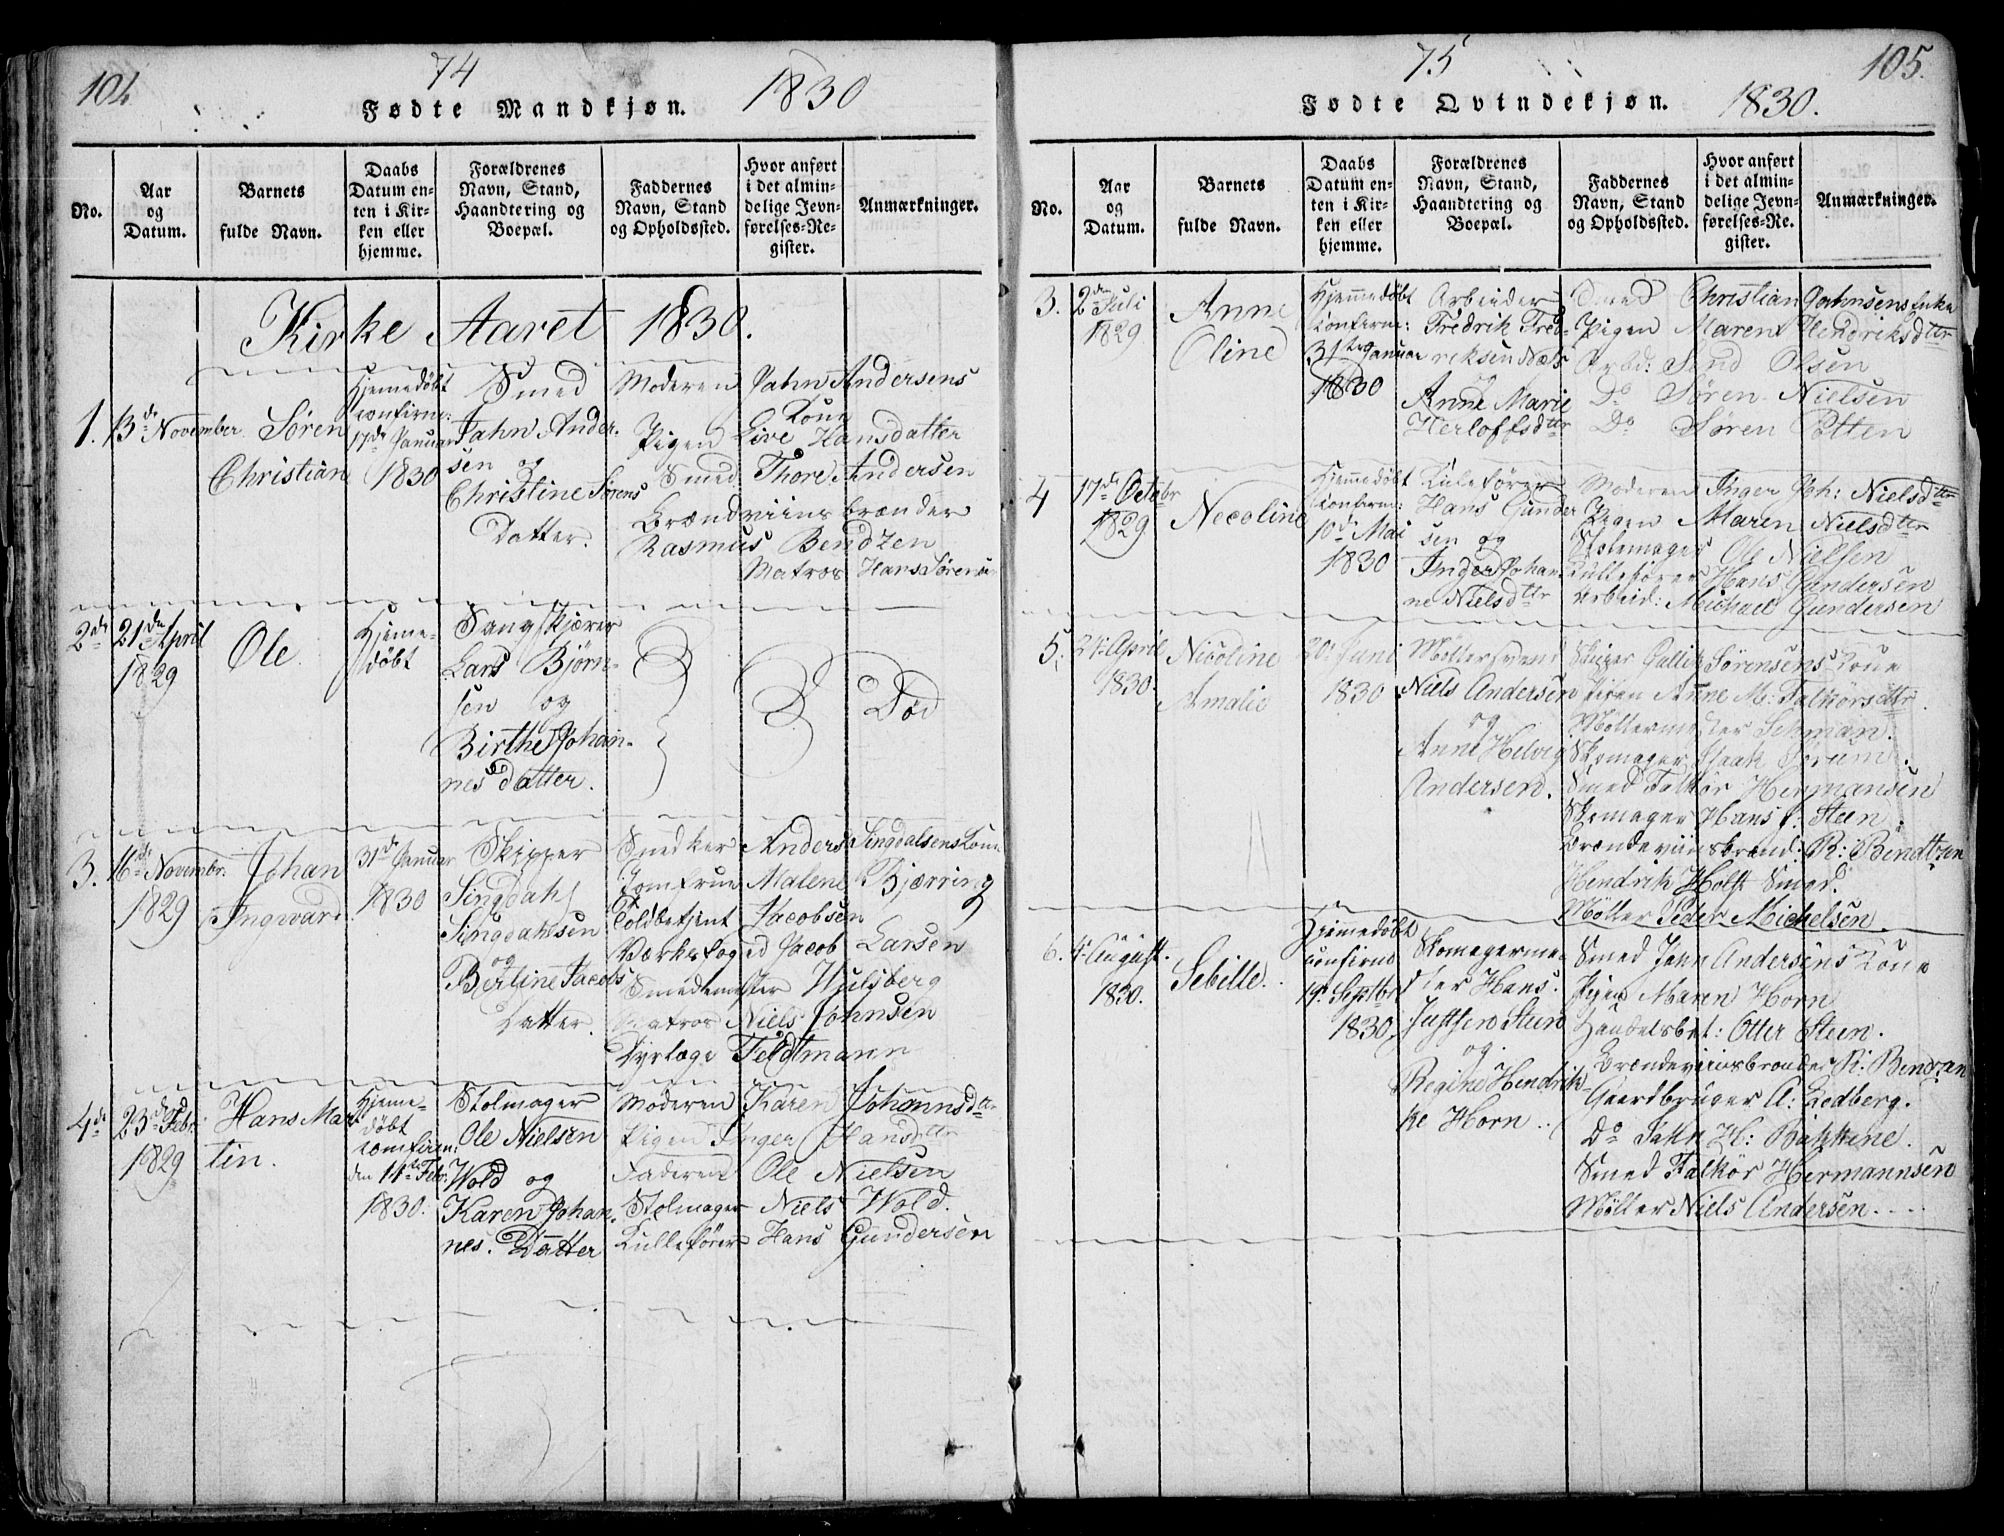 104
74
Fødte Mandkjøn.
1830
No.
Aar
og
Datum.
Barnets
fulde Navn.
Daabs
Datum en-
ten i Kir-
ken eller
hjemme.
Forældrenes
Navn, Stand,
Haandtering og
Boepæl.
Faddernes
Navn, Stand
og Opholdssted.
Hvor anført
i det almin-
delige Jevn-
førelses-Re-
gister.
Anmærkninger.
Kirke Aaret 1830.
1.
13de November
Søren
Christian
Hjemedøbt
confirm:
17de Januar
1830
Smed
Jahn Ander-
sen og
Christine Sørens
Datter.
Moderen Jahn Andersens
Kone
Pigen Live Hansdatter
Smed Thore Andersen
Brændviinsbrænder
Rasmus Bendzen
Matros Hans Sørensen
2de
21de April
1829
Ole
Hjeme-
døbt
Sangskjærer
Lars Bjørn-
sen og
Birthe Johan-
nesdatter.
Død
3.
16de Novembr.
1829
Johan
Ingvard
31de Januar
1830
Skipper
Singdahl
Singdahlsen
og
Bertine Jacobs
Datter.
Snedker Anders Singdalsens Kone
Jomfrue Malene Bjærring
Toldbetjent Jacobsen
Værksfoged Jacob Larsen
Smedemester Hulsberg
Matros Niels Johnsen
Dyrlæge Feldtmann
4de
23de Febr.
1829
Hans Mar-
tin.
Hjeme-
døbt
comfirm:
den 14de Febr.
1830.
Stolmager
Ole Nielsen
Wold og
Karen Johan-
nes. Datter
Moderen Karen Johannsdtr
Pigen Inger Hansdtr
Faderen Ole Nielsen
Stolmager Niels Wold.
Kullefører Hans Gundersen
75
105.
Fødte Qvindekjøn.
1830.
No.
Aar
og
Datum.
Barnets
fulde Navn.
Daabs
Datum en-
ten i Kir-
ken eller
hjemme.
Forældrenes
Navn, Stand,
Haandtering og
Boepæl.
Faddernes
Navn, Stand
og Opholdssted.
Hvor anført
i det almin-
delige Jevn-
førelses-Re-
gister.
Anmærkninger.
3.
2den Juli
1829
Anne
Oline
Hjemmedøbt
Confirm:
31te Januar
1830
Arbeider
Fredrik Fred-
riksen Næs
og
Anne Marie
Herloffsdtr
Smed Christian Jahnsens Enke
Pigen Maren Hendriksdtr
Arbd: Send Olsen
Do Søren Nielsen
Do Søren Potten
4
17de Octobr
1829
Necoline
Hjemmedøbt
Confirm:
10de Mai
1830
Kulefører
Hans Gunder
sen og
Inger Johan-
ne Nielsdtr
Moderen Inger Joh: Nielsdtr
Pigen Maren Nielsdtr
Stolemager Ole Nielsen
Kullefører Hans Gundersen
Arbeid: Michael Gundersen
5.
24. April
1830.
Nicoline
Amalie
20. Juni
1830
Møllersvend
Niels Andersen
og
Anne Helvig
Andersen.
Skipper Sørensens Kone
Pigen Anne M: Falkørsdtr.
Møllermester Lehman.
Skomager Isaak Sørum.
Smed Falkør Hermansen
Skomager Hans J: Steen.
Brændeviinsbrænd: R: Bendtzen
Hendrik Holst Smed.
Møller Peder Michelsen.
6.
4. August.
1830.
Sebille.
Hjemedøbt
confirmd
19. Septbr
1830
Skomagerme-
ster Hans
Justsen Steen
og
Regine Hendrik-
ke Horn.
Smed Jahn Andersens Kone
Pigen Maren Horn
Handelsbet: Otter Steen.
Brændeviinsbrænder R: Bendzen
Gaardbruger A: Liedberg.
Do Jahn H:
Smed Falkør Hermannsen
Møller Niels Andersen.